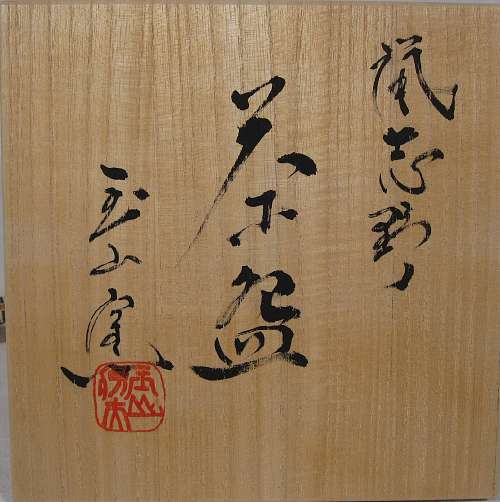 鼠志野
茶盌
玉山窯